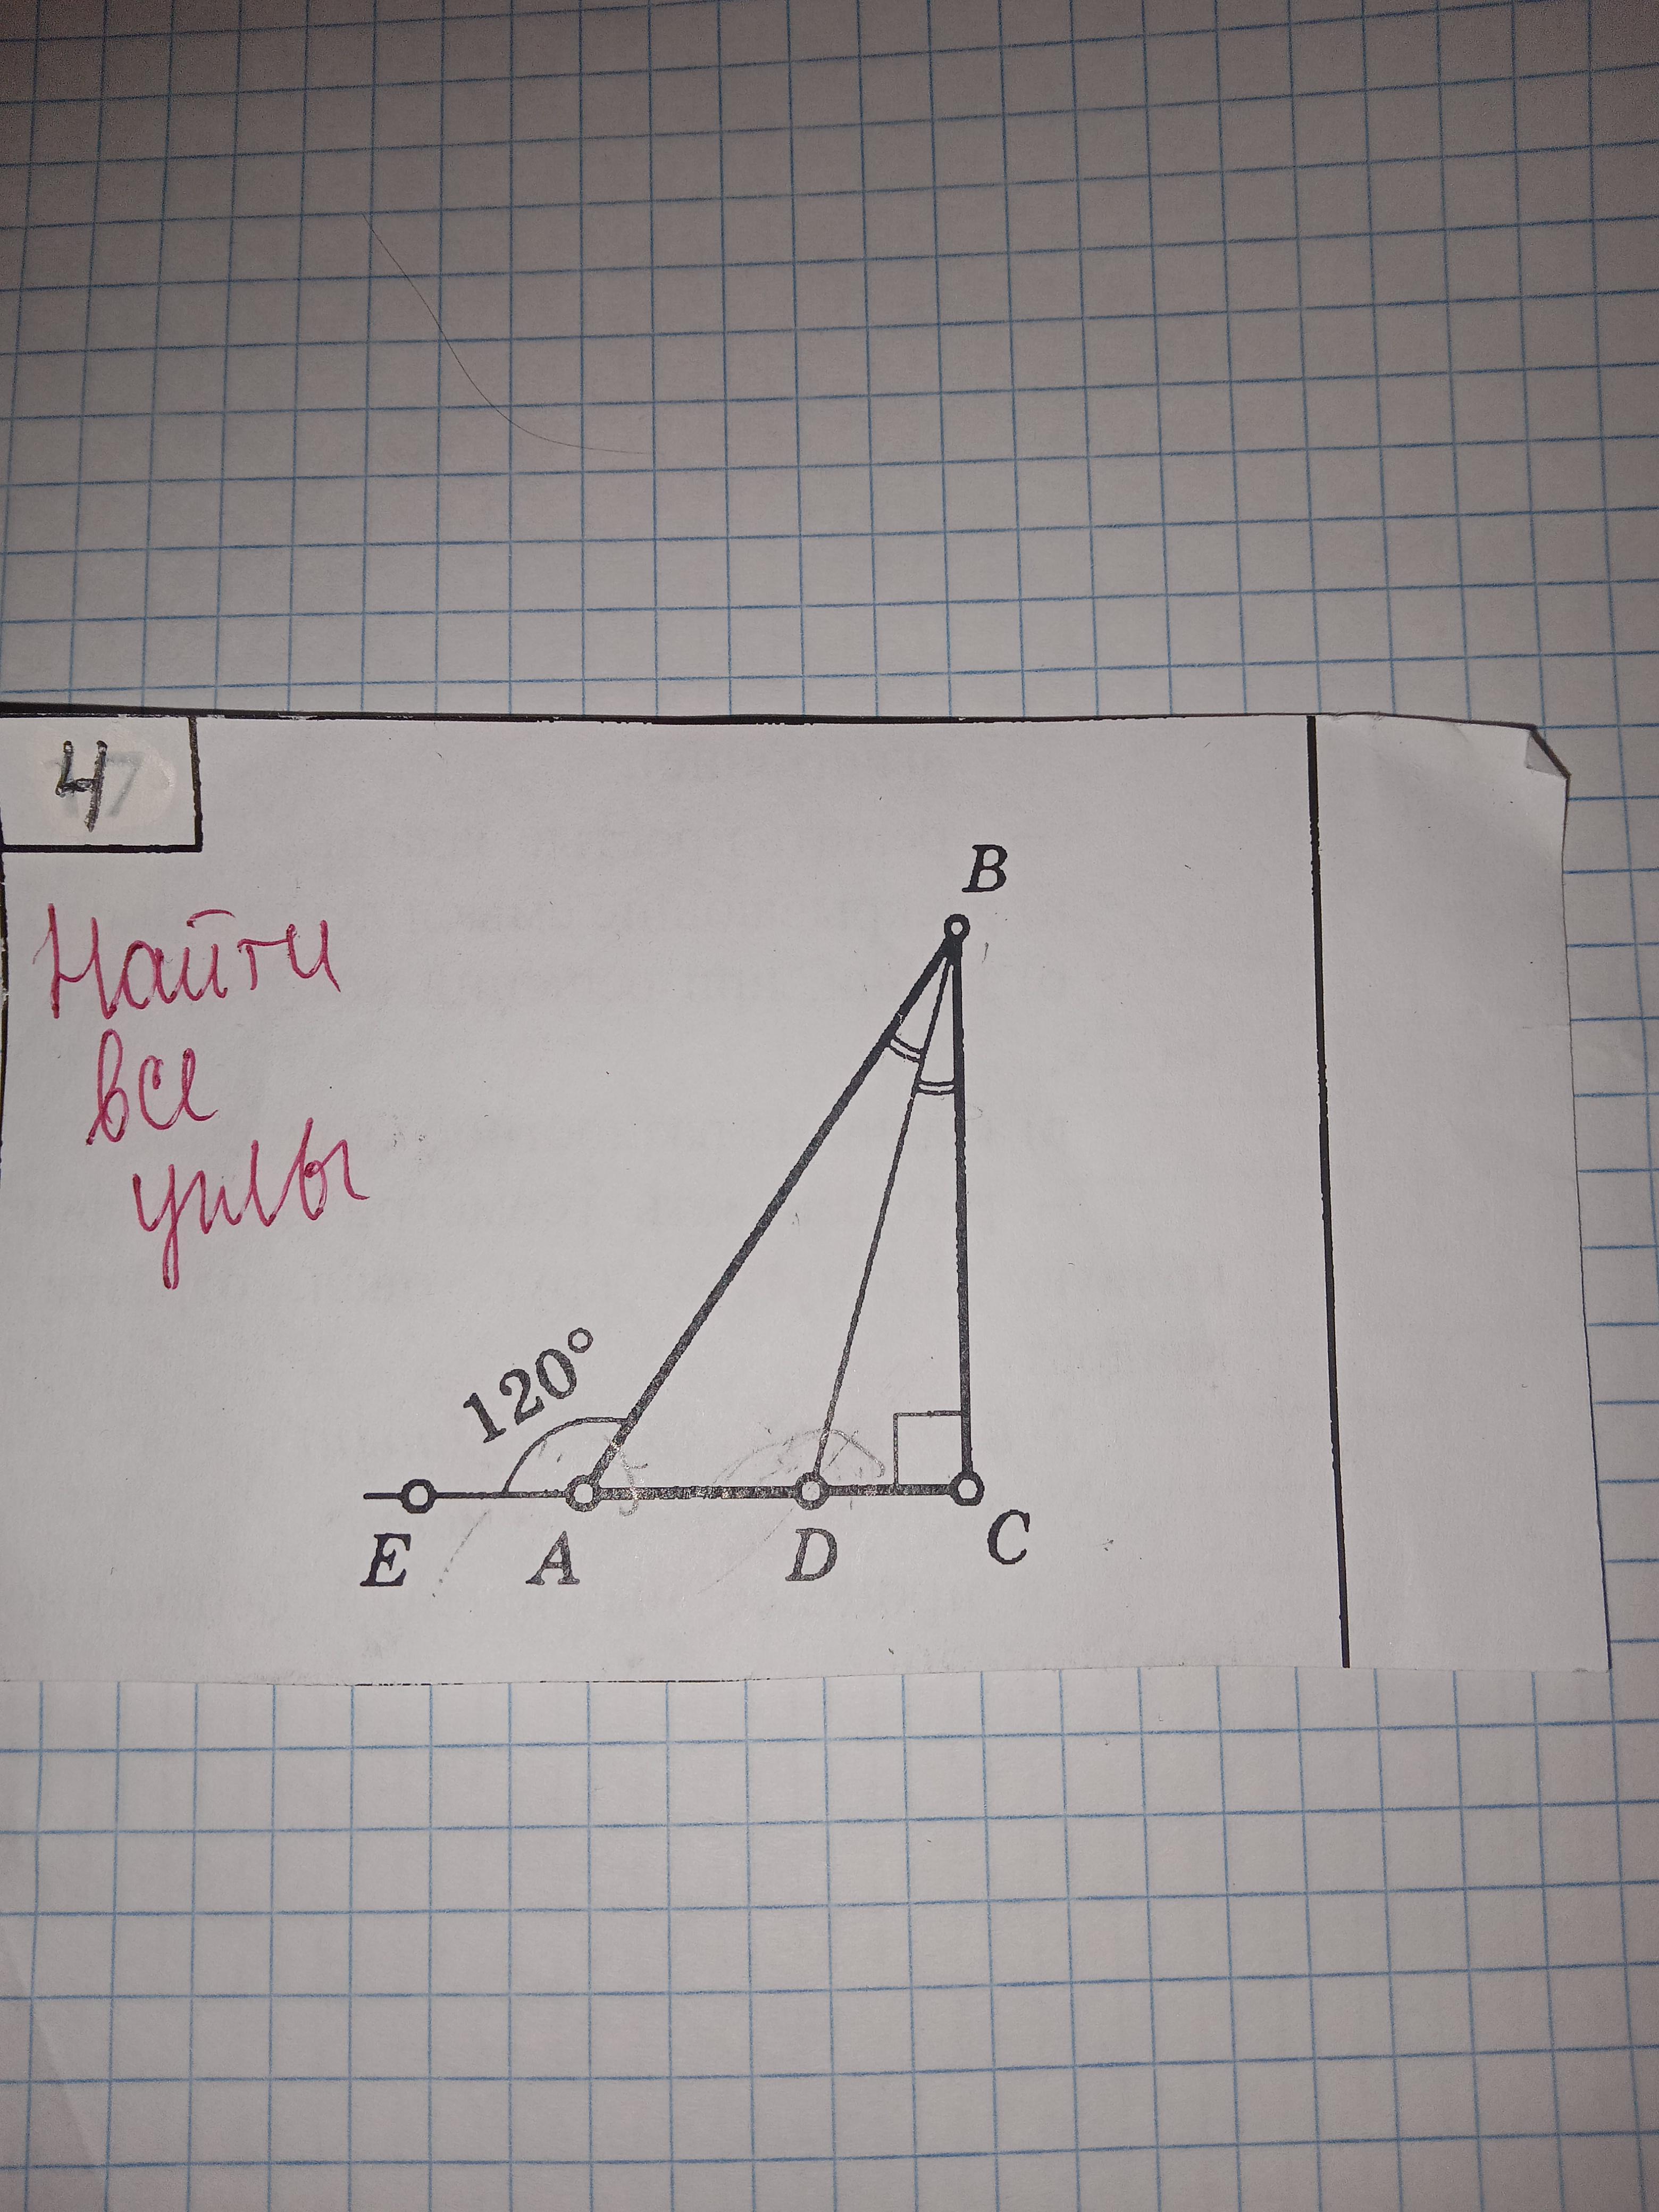 4
Найти
все
углы
B
120°
E A D C